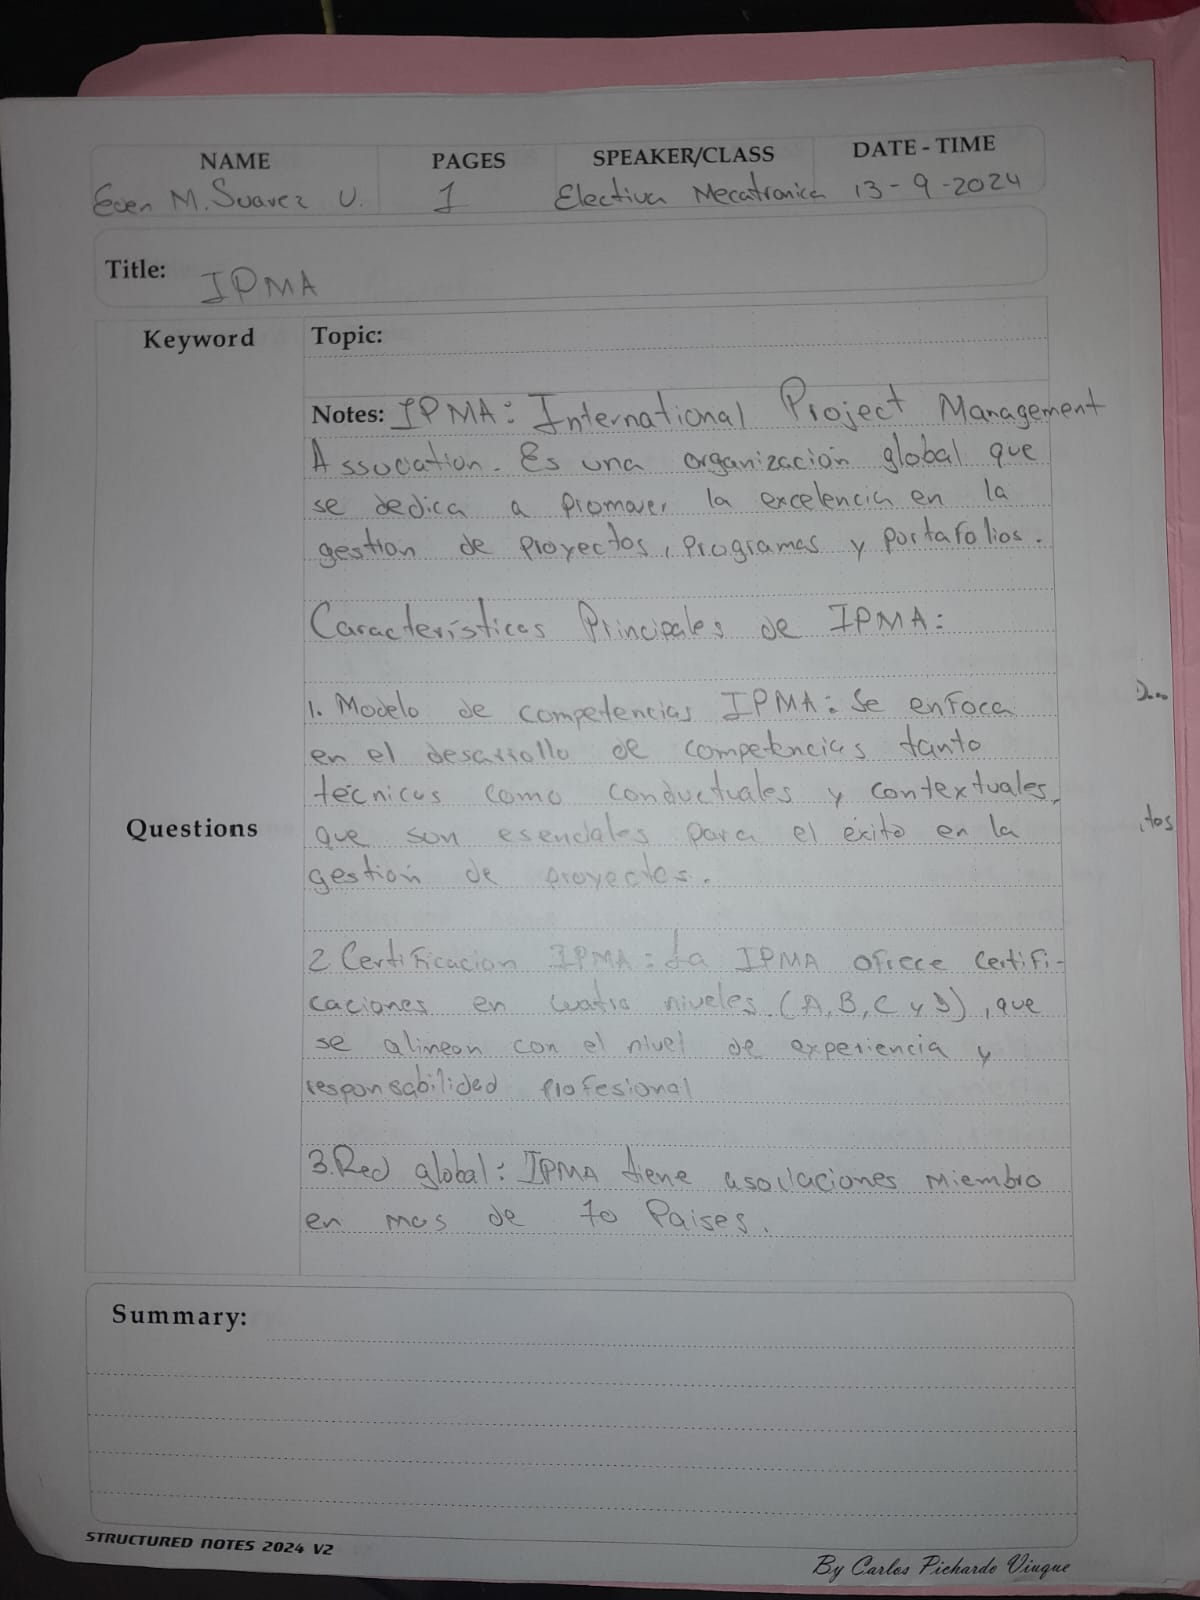 NAME PAGES SPEAKER/CLASS DATE - TIME
Even M. Suarez U. 1 Electiva Mecatronica 13-9-2024
Title: IPMA
Keyword Topic:
Notes: IPMA: International Project Management
Association. Es una organización global que
se dedica a promover la excelencia en la
gestion de proyectos, programas y portafolios.
Características Principales de IPMA:
1. Modelo de competencias IPMA: Se enfoca
en el desarrollo de competencias tanto
técnicas como conductuales y contextuales,
Questions que son esenciales para el éxito en la
gestión de proyectos.
2 Certificacion IPMA: La IPMA ofrece certifi-
caciones en cuatro niveles (A, B, C y D), que
se alinean con el nivel de experiencia y
responsabilidad profesional
3. Red global: IPMA tiene asociaciones miembro
en mas de 70 Paises.
Summary:
STRUCTURED NOTES 2024 V2
By Carlos Pichardo Viuque